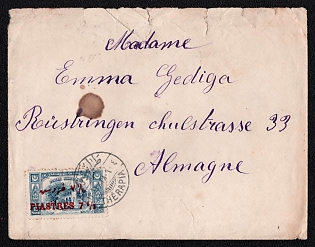 Madame
Emma Gediga
Rüstringen chulstrasse 33
Almagne
PIASTRES 7½
THERAPIA